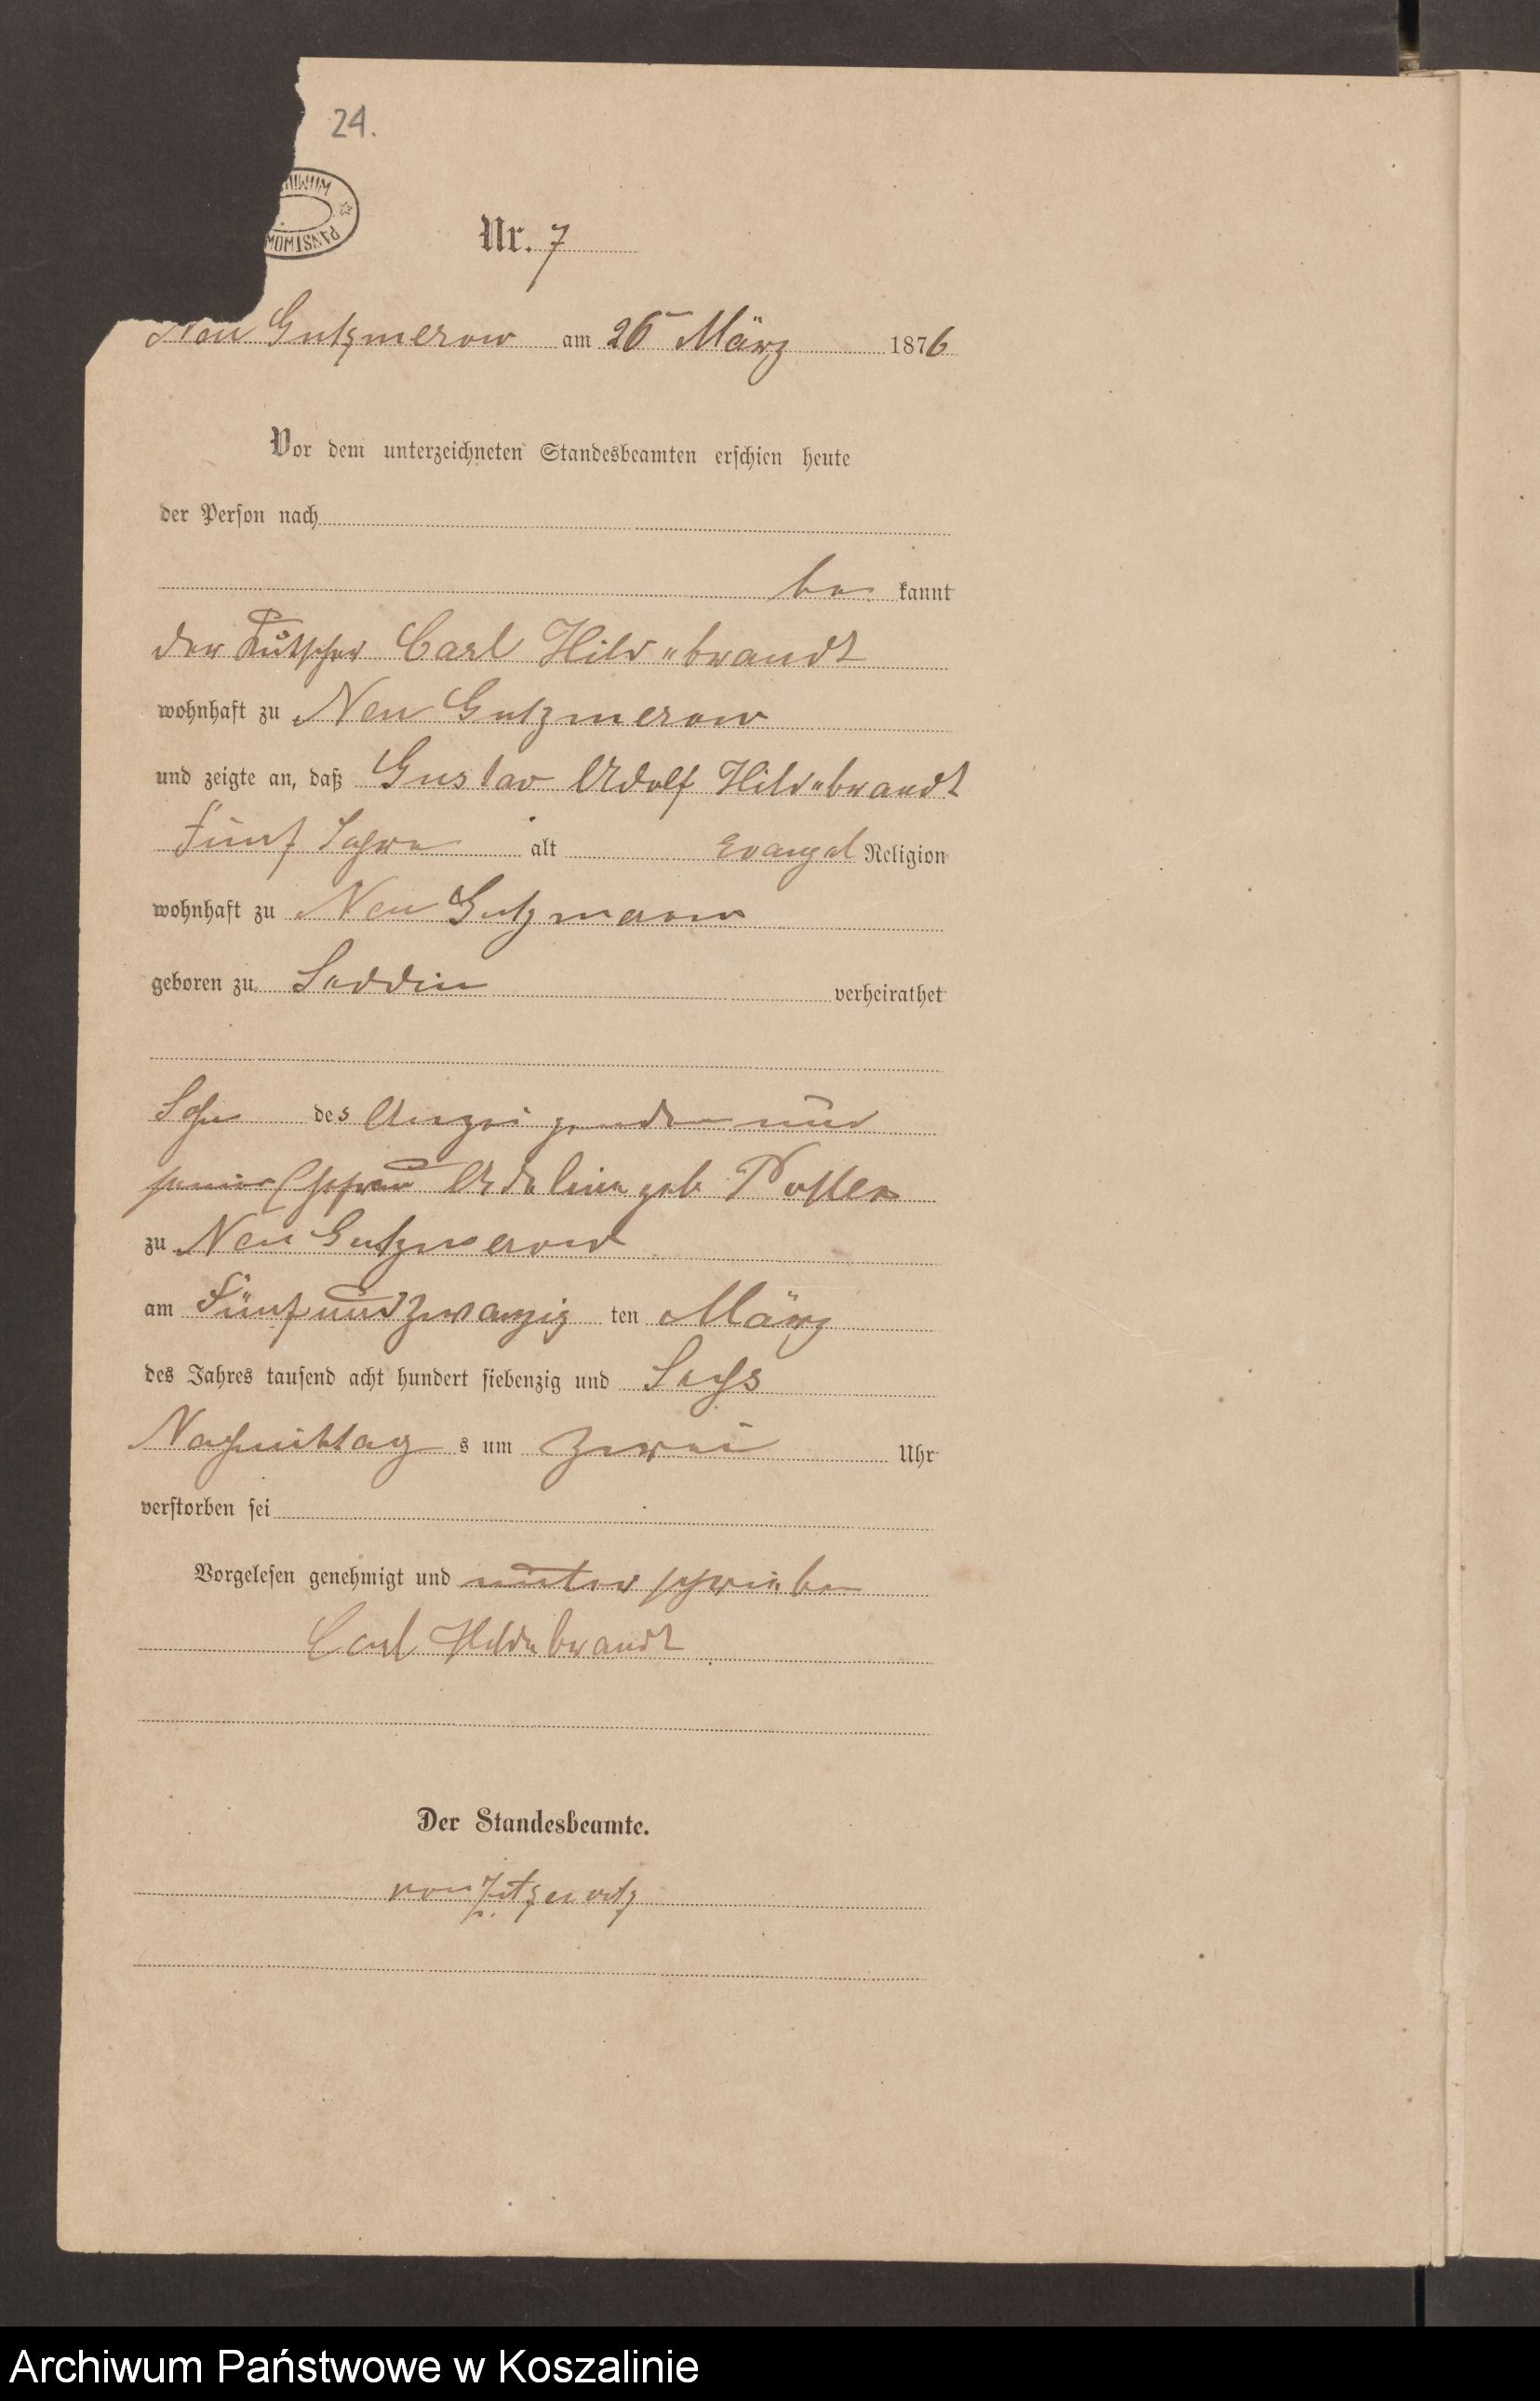 24.
PAŃSTWOW
Nr. 7
Neu Gutzmerow am 26 März 1876
Vor dem unterzeichneten Standesbeamten erschien heute
der Person nach
be kannt
der Kutscher Carl Hildebrandt
wohnhaft zu Neu Gutzmerow
und zeigte an, daß Gustav Adolf Hildebrandt
Fünf Jahre alt Evangel Religion
wohnhaft zu Neu Gutzmerow
geboren zu Seddin verheirathet
Sohn des Anzeigenden und
seiner Ehefrau Adeline geb
zu Neu Gutzmerow
am Fünfundzwanzig ten März
des Jahres tausend acht hundert siebenzig und Sechs
Nachmittag s um Zwei Uhr
verstorben sei
Vorgelesen genehmigt und unterschrieben
Carl Hildebrandt
Der Standesbeamte.
von Zitzewitz
Archiwum Państwowe w Koszalinie